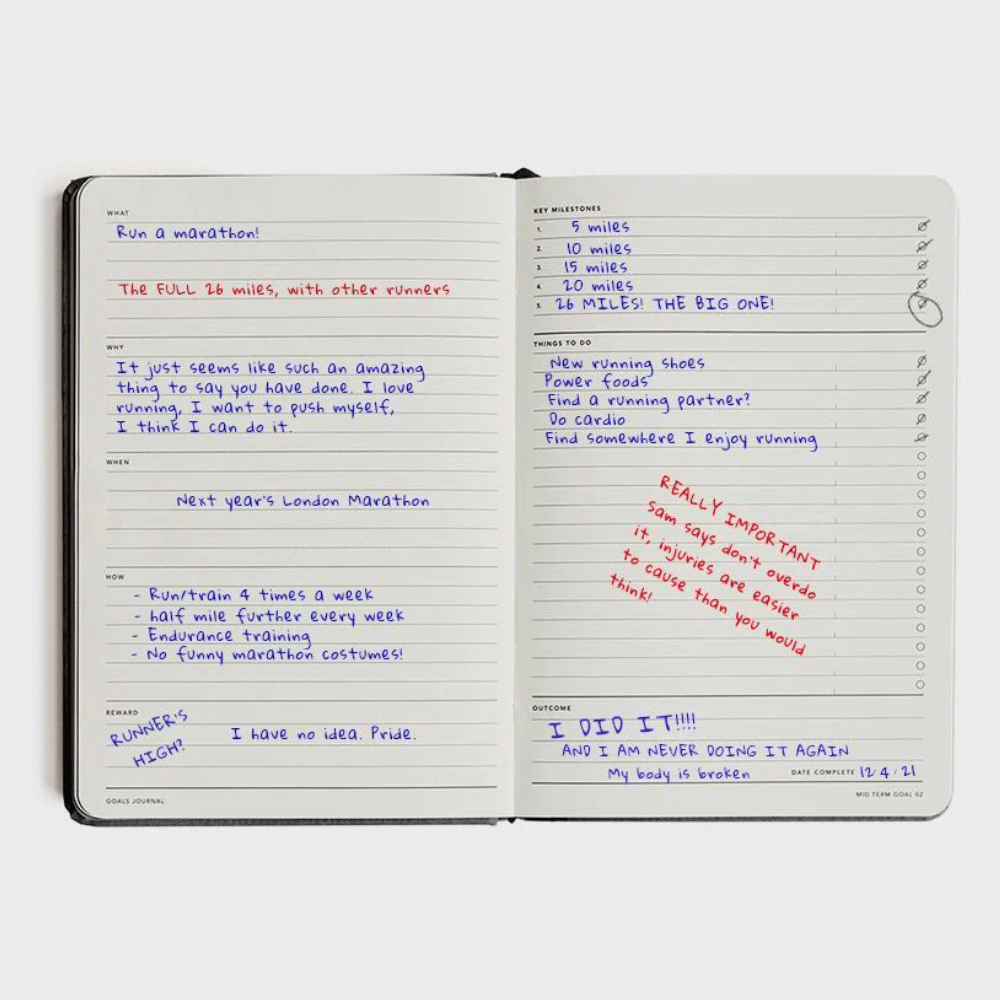 WHAT
Run a marathon!
The FULL 26 miles, with other runners
WHY
It just seems like such an amazing
thing to say you have done. I love
running, I want to push myself,
I think I can do it.
WHEN
Next year's London Marathon
HOW
- Run/train 4 times a week
- half mile further every week
- Endurance training
- No funny marathon costumes!
REWARD
RUNNER'S
HIGH?
I have no idea. Pride.
GOALS JOURNAL
KEY MILESTONES
1. 5 miles
2. 10 miles
3. 15 miles
4. 20 miles
5. 26 MILES! THE BIG ONE!
THINGS TO DO
New running shoes
Power foods
Find a running partner?
Do cardio
Find somewhere I enjoy running
REALLY IMPORTANT
Sam says don't overdo
it, injuries are easier
to cause than you would
think!
OUTCOME
I DID IT!!!!
AND I AM NEVER DOING IT AGAIN
My body is broken
DATE COMPLETE 12/4/21
MID TERM GOAL 02